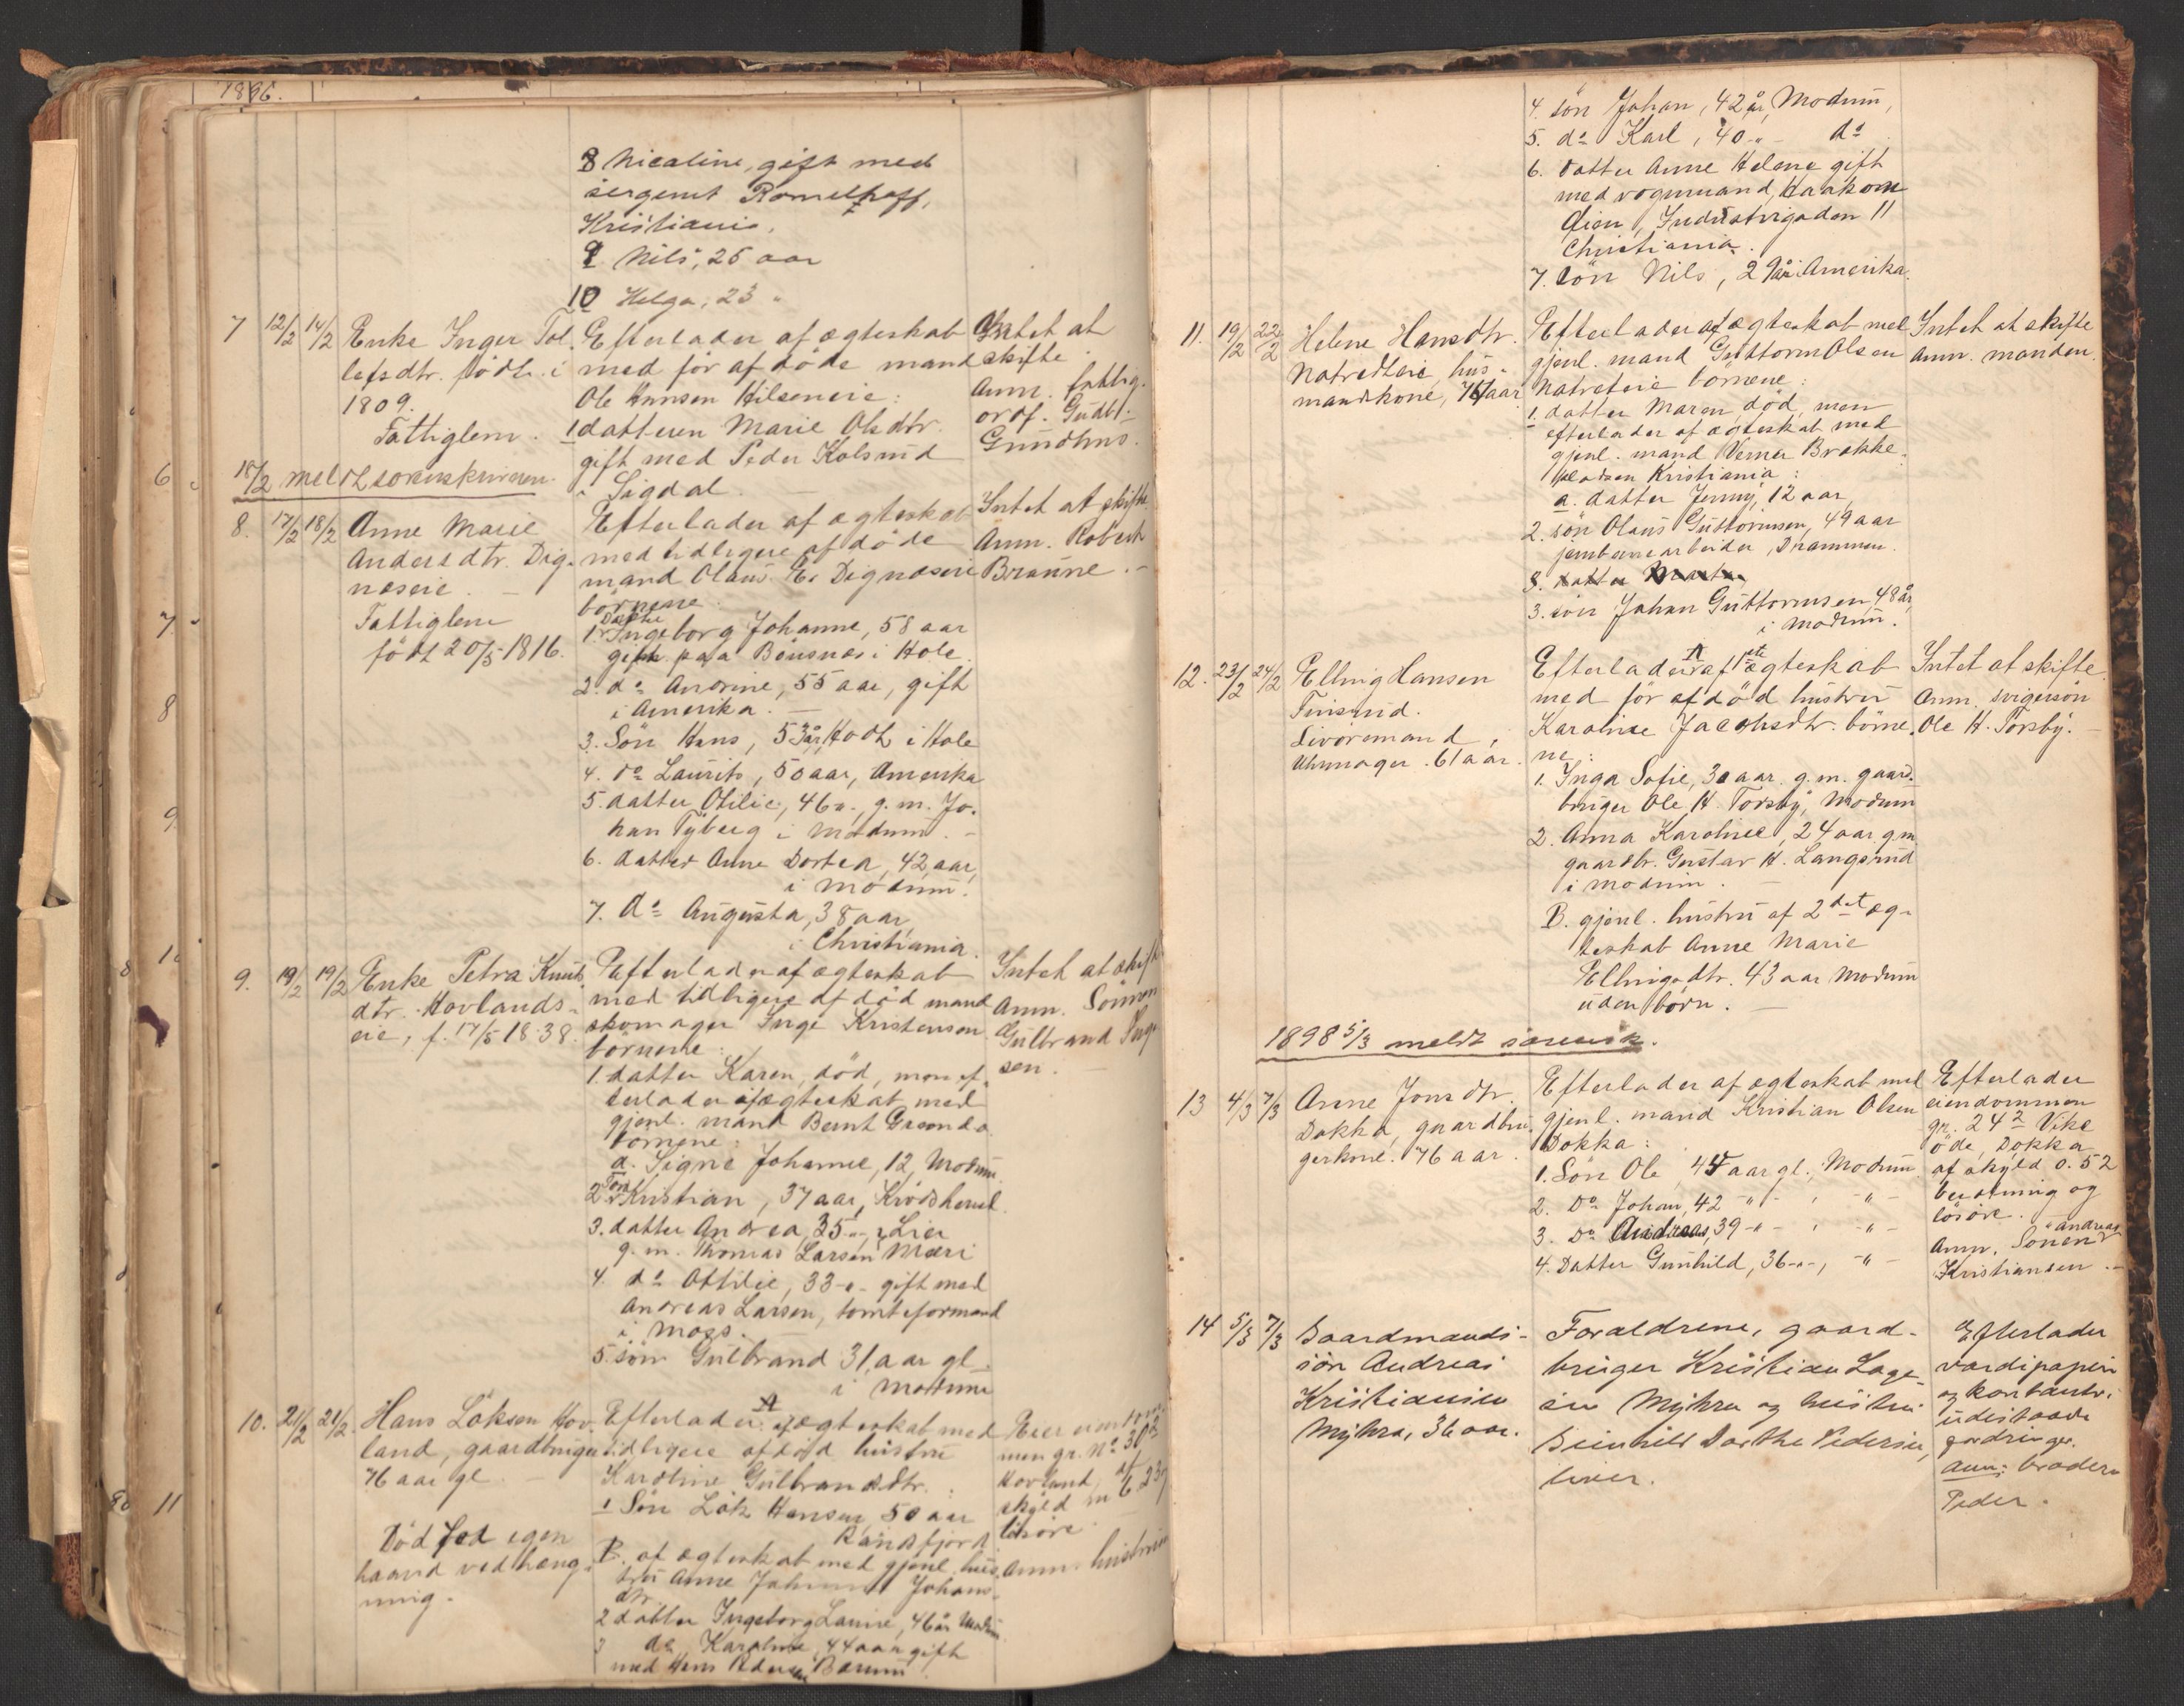 1896.
8 Nicoline, gift med
sergent Romelhoff,
Kristiania.
9. Nils, 25 aar
10 Helga, 23 "
7 12/2 14/2 Enke Inger Tol-
lefsdtr. født i
1809.
Fattiglem.
Efterlader af ægteskab
med før afdøde mand
Ole Hansen Hilseneie:
1 datteren Marie Olsdtr.
gift med Peder Kolsrud
i Sigdal.
Intet at
skifte.
Anm. fattig-
ordf. Gudbr.
Grundhus.
18/2 meldt sorenskriveren.
8. 17/2 18/2 Anne Marie
Andersdtr. Dig-
næseie.
Fattiglem
født 20/5 1816.
Efterlader af ægteskab
med tidligere afdøde
mand Olaus E. Dignæseie
børnene.
1. Datter Ingeborg Johanne, 58 aar
gift paa Bønsnæs i Hole.
2. do Andrine, 55 aar, gift
i Amerika.
3. Søn Hans, 53 år, Hodt i Hole
4. do Laurits, 50 aar, Amerika
5. datter Otilie, 46 ", g. m. Jo-
han Tyberg i Modum.
6. datter Anne Dortea, 42 aar,
i Modum.
7. do Augusta, 38 aar
i Christiania.
Intet at skifte
Anm. Robert
Braune.
9. 19/2 19/2 Enke Petra Knuts-
dtr. Hovlands-
eie, f. 17/5 1838.
Efterlader af ægteskab
med tidligere afdød mand
skomager Inge Kristensen
børnene:
1. datter Karen, død, men ef-
terlader af ægteskab med
gjenl. mand Bernt
børnene:
a. Signe Johanne, 12, Modum.
2. Søn Kristian, 37 aar, Krødsherred.
3. datter Andrea, 35 -"-, i Lier
g. m. Thomas Larsen Mæri
4. do Ottilie, 33 -"- gift med
Andreas Larsen, tomteformand
i Moss.
5. søn Gulbrand 31, aar gl.
i Modum
Intet at skift
Anm. Sønnen
Gulbrand Inge
sen.
10. 21/2 21/2. Hans Løksen Hov-
land, gaardbruger
76 aar gl.
Død ved egen
haand ved hæng-
ning.
Efterlader A af ægteskab med
tidligere afdød hustru
Karoline Gulbrandsdtr. :
1 Søn Løk Hansen, 50 aar
Randsfjord.
B. af ægteskab med gjenl. hus-
tru Anne Johanne Johans-
dtr.
2 datter Ingeborg Laurine, 46 år Modum
3 do Karoline, 44 aar gift
med Hans Pedersen Bærum
Eier eiendom-
men gr. No 30
Hovland, af
skyld m 6.23
løsøre.
Anm. hustruen
4. søn Johan, 42 år, Modum,
5. do Karl, 40 -"- do
6. datter Anne Helene gift
med vognmand, Haakon
Øien, Industrigaden 11
Christiania.
7. søn Nils, 29 år i Amerika.
11. 19/2 22/2 Helene Hansdtr.
Natvedteie, hus-
mandskone, 76 aar
Efterlader af ægteskab med
gjenl. mand Guttorm Olsen
Natvedteie børnene:
1. datter Maren død, men
efterlader af ægteskab med
gjenl. mand Verner Brække-
pladsen Kristiania:
a. datter Jenny, 12 aar,
2. søn Olaus Guttormsen, 49 aar
jernbanearbeider, Drammen.
3. datter Marte
3. søn Johan Guttormsen, 48 år,
i Modum.
Intet at skifte
Anm. manden.
12. 23/2 24/2 Elling Hansen
Finsrud.
Livøremand,
Uhrmager. 61 aar.
Efterlader A af 1ste ægteskab
med før afdød hustru
Karoline Jacobsdtr. børne-
ne:
1. Inga Sofie, 30 aar. g. m. gaard-
bruger Ole H. Torsby, Modum
2. Anna Karoline, 24 aar g. m.
gaardbr. Gustav H. Langsrud
i Modum.
B. gjenl. hustru af 2det æg-
teskab Anne Marie
Ellingsdtr. 43 aar Modum
uden børn.
Intet at skifte.
Anm. svigersøn
Ole H. Torsby.
1898 5/3 meldt sorensk.
13 4/3 7/3 Anne Jonsdtr.
Dokka, gaardbru-
gerkone. 76 aar.
Efterlader af ægteskab med
gjenl. mand Kristian Olsen
Dokka:
1. Søn Ole, 44 aar gl., Modum
2. Do Johan, 42 -"- , -"-
3. Do Andreas, 39 -"- , -"-
4. Datter Gunhild, 36 -"-, -"-
Efterlader
eiendommen
gr. 24 2 Vike
øde, Dokka
af skyld 0.52
besætning og
løsøre.
Anm. Sønen Andreas
Kristiansen.
14 5/3 7/3 Gaardmands-
søn Andreas
Kristiansen
Myhra, 36 aar.
Forældrene, gaard-
bruger Kristian Lage-
sen Myhra og hustru
Gunhild Dorthe Pedersen,
lever.
Efterlader
værdipapirer
og kontanter,
udestaaende
fordringer.
Anm: broderen
Peder.
6
7
8
9
10
11